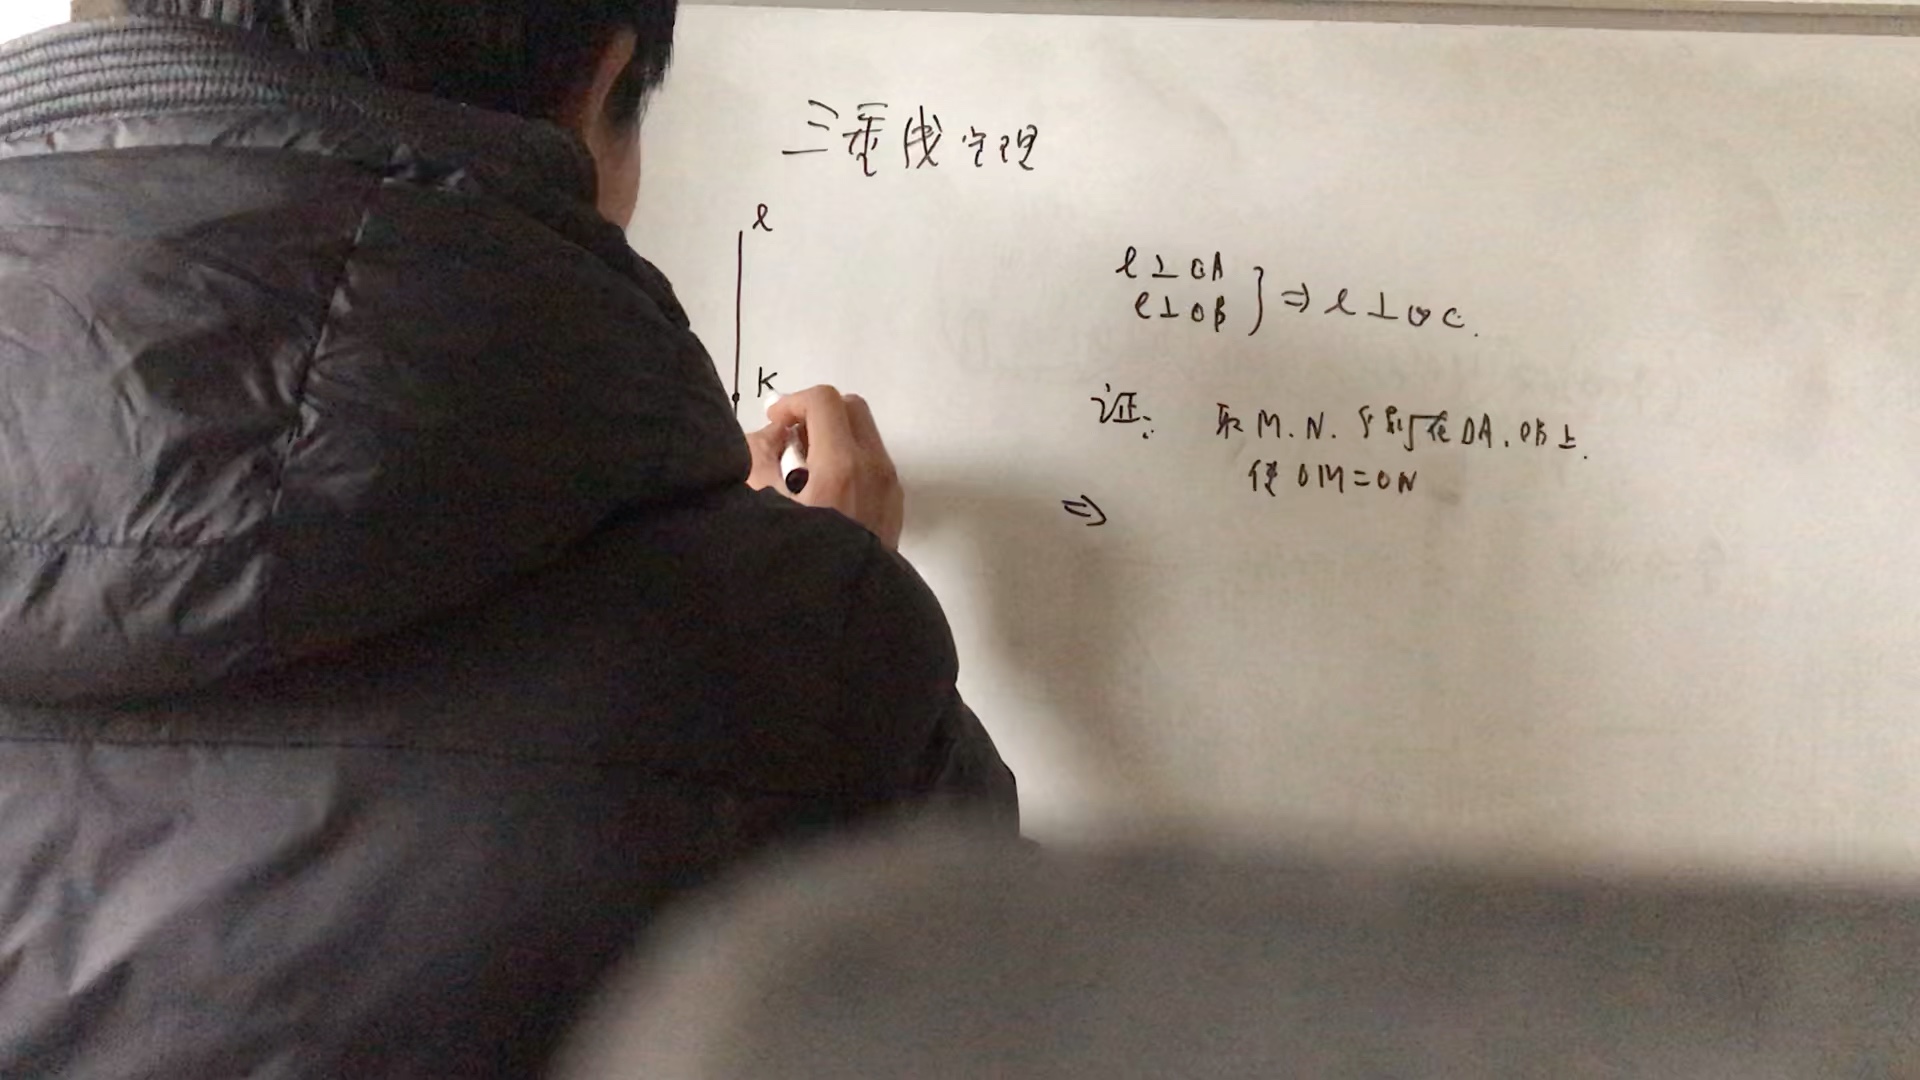 三垂线定理
l
l⊥OA
l⊥OB } ⇒ l⊥OC.
K
证: 取M.N.分别在OA.OB上.
使OM=ON
⇒